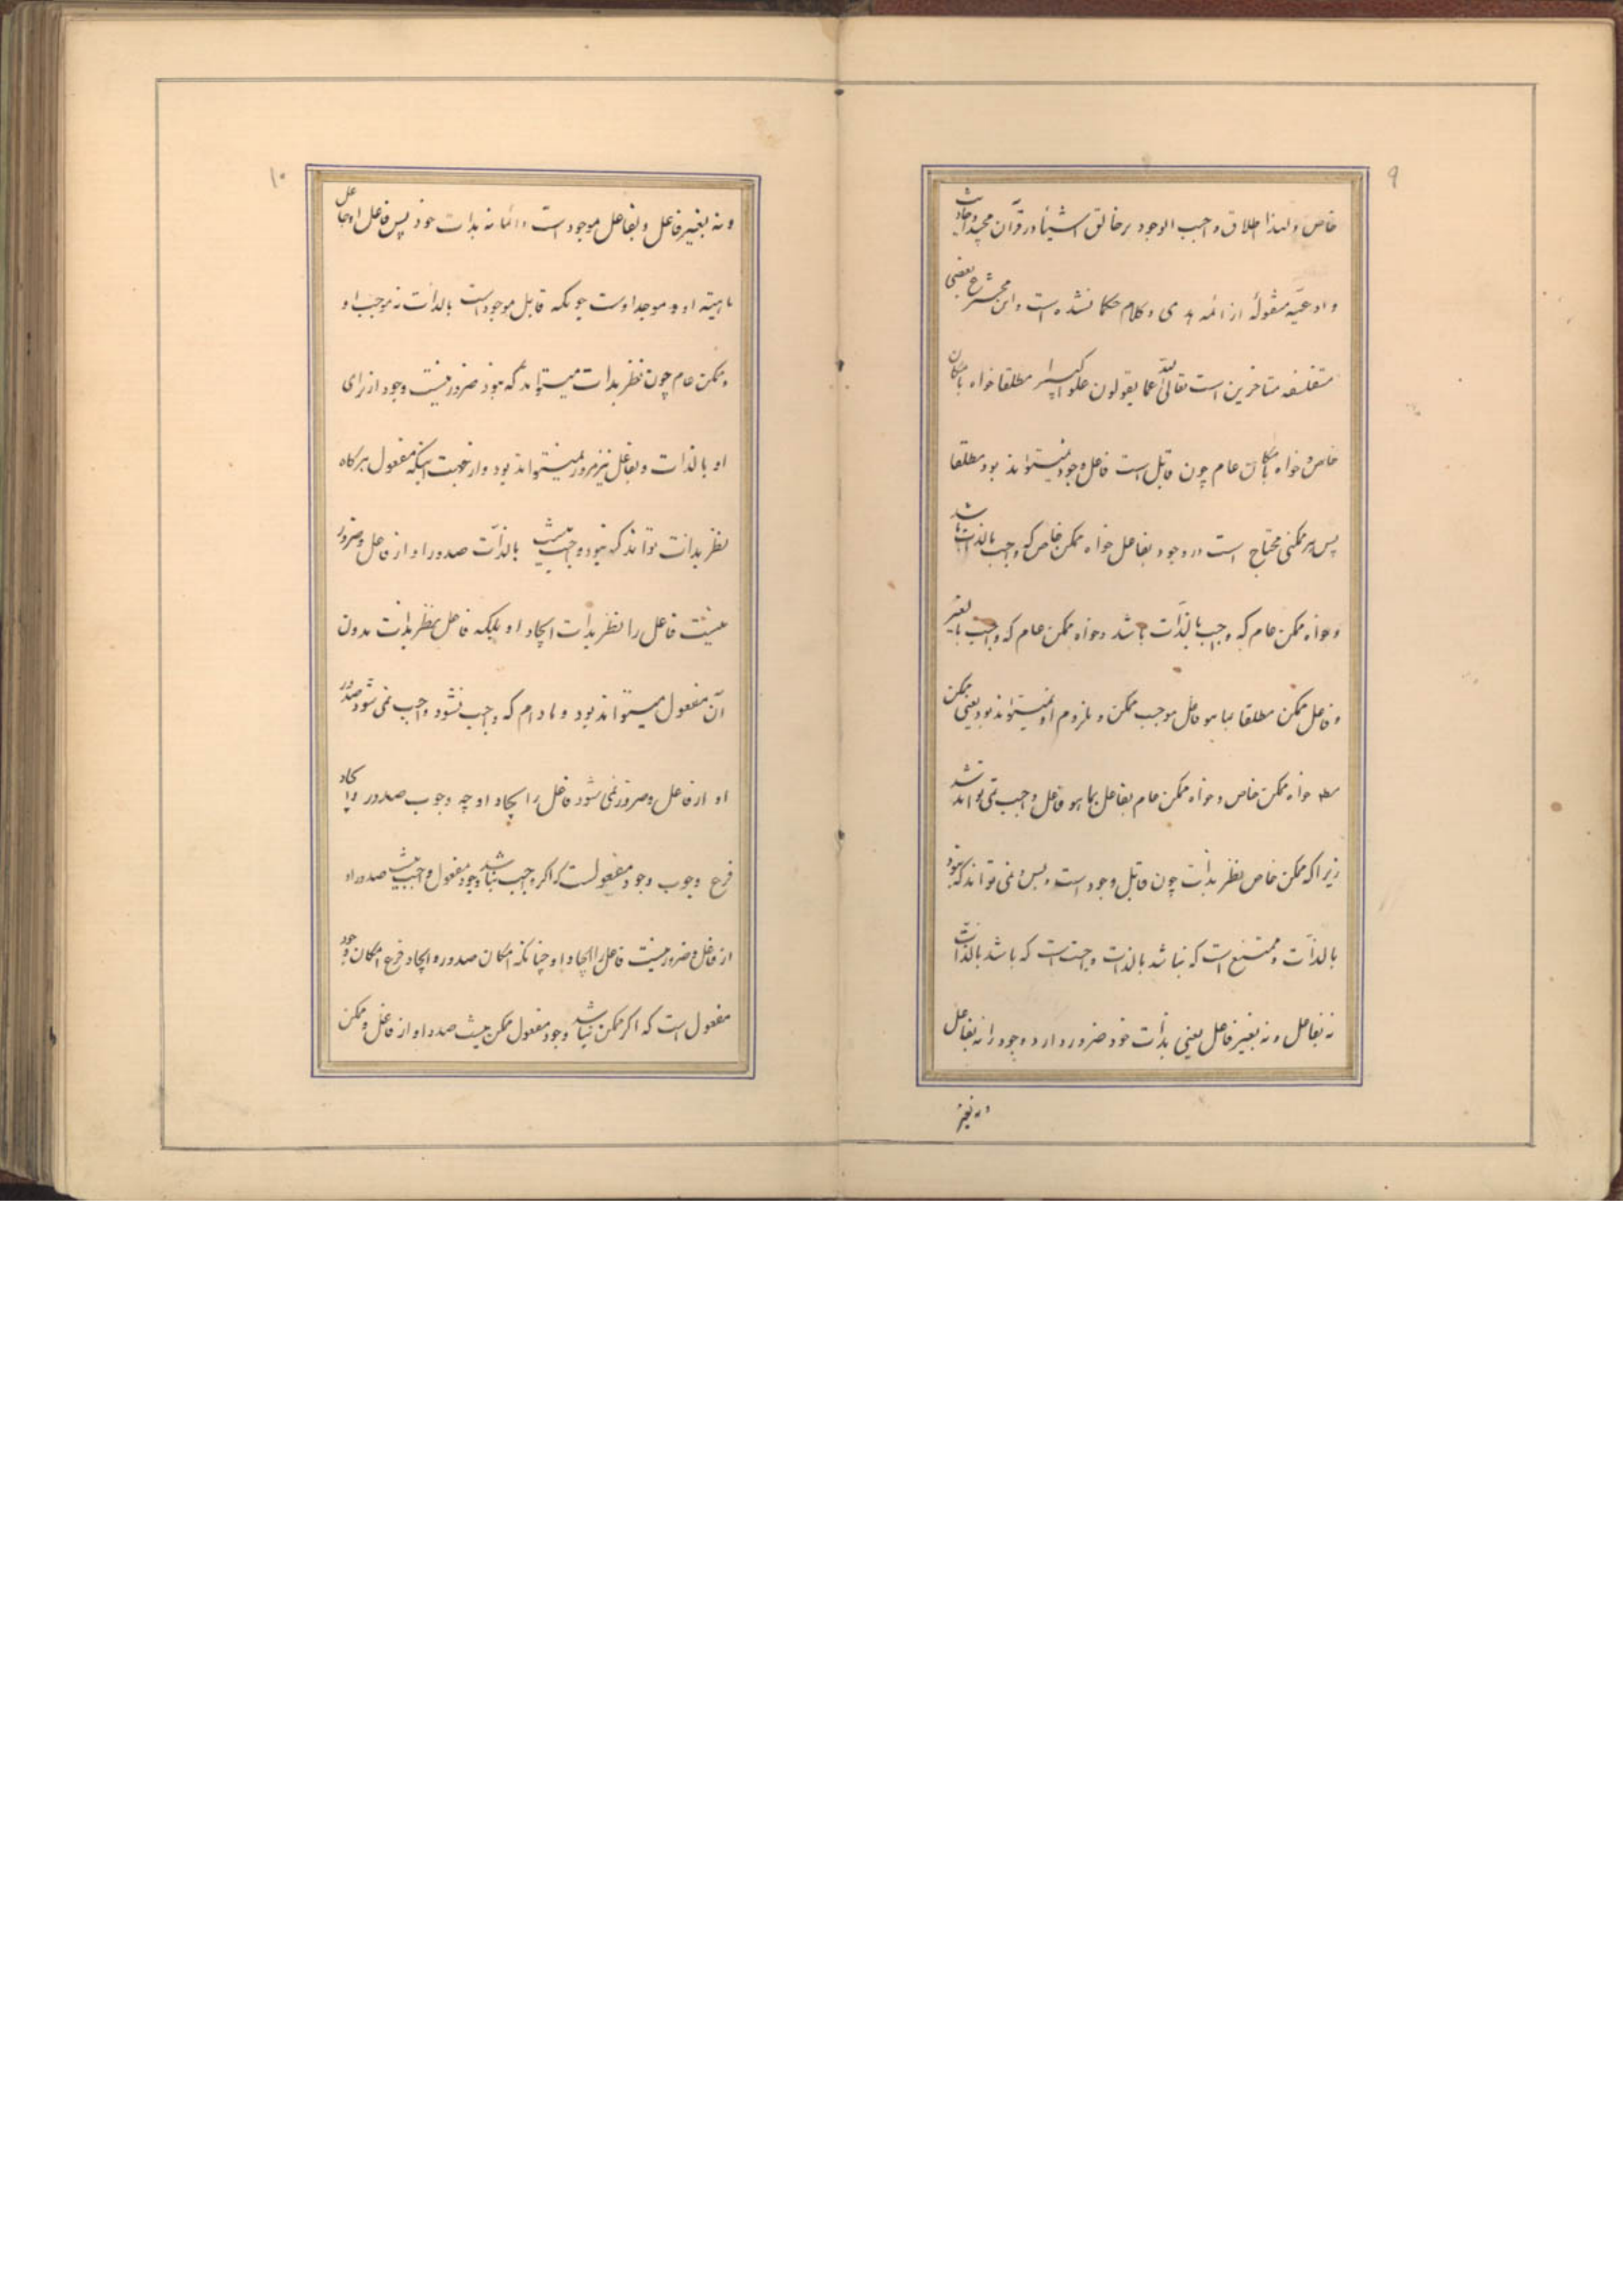 ۹
خاص و لهذا اطلاق واجب الوجود بر خالق اشیا در قرآن مجید و احادیث
و ادعیه منقوله از ائمه هدی و کلام حکما نشده است و این مخترع بعضی
متفلسفه متاخرین است تعالی الله عما یقولون علوا کبیرا مطلقا خواه بامکان
خاص و خواه بامکان عام چون قابل است فاعل وجود نمیتواند بود مطلقا
پس هر ممکنی محتاج است در وجود بفاعل خواه ممکن خاص که واجب بالذات باشد
و خواه ممکن عام که واجب بالذات باشد و خواه ممکن عام که واجب بالغیر
و فاعل ممکن مطلقا بما هو فاعل موجب ممکن و ملزوم او نمیتواند بود یعنی ممکن
خواه ممکن خاص و خواه ممکن عام بفاعل بما هو فاعل واجب نمی تواند شد
زیرا که ممکن خاص بنظر بذات چون قابل وجود است و بس و نمی تواند که نبود
بالذات و ممتنع است که نباشد بالذات واجبست که باشد بالذات
نه بفاعل و نه بغیر فاعل یعنی بذات خود ضرور دارد وجود را نه بفاعل
و نه بغیر
۱۰
و نه بغیر فاعل و بفاعل موجود است دائما نه بذات خود پس فاعل او جاعل
ماهیة او و موجد اوست چونکه قابل موجود است بالذات نه موجب او
و ممکن عام چون نظر بذات میتواند که نبود ضرور نیست وجود از برای
او بالذات و بفاعل نیز ضرور نمیتواند بود و از اینجهت اینکه مفعول هرگاه
نظر بذات تواند که نبود واجب نیست بالذات صدور او از فاعل و ضرور
نیست فاعل را نظر بذات ایجاد او بلیکه فاعل بنظر بذات بدون
آن مفعول میتواند بود و مادام که واجب نشود واجب نمی شود صدور
او از فاعل و ضرور نمی شود فاعل را ایجاد او چه وجوب صدور و ایجاد
فرع وجوب وجود مفعولست که اگر واجب نباشد وجود مفعول واجب نیست صدور او
از فاعل و ضرور نیست فاعل را ایجاد او چنانکه امکان صدور و ایجاد فرع امکان وجود
مفعول است که اگر ممکن نباشد وجود مفعول ممکن نیست صدور او از فاعل و ممکن